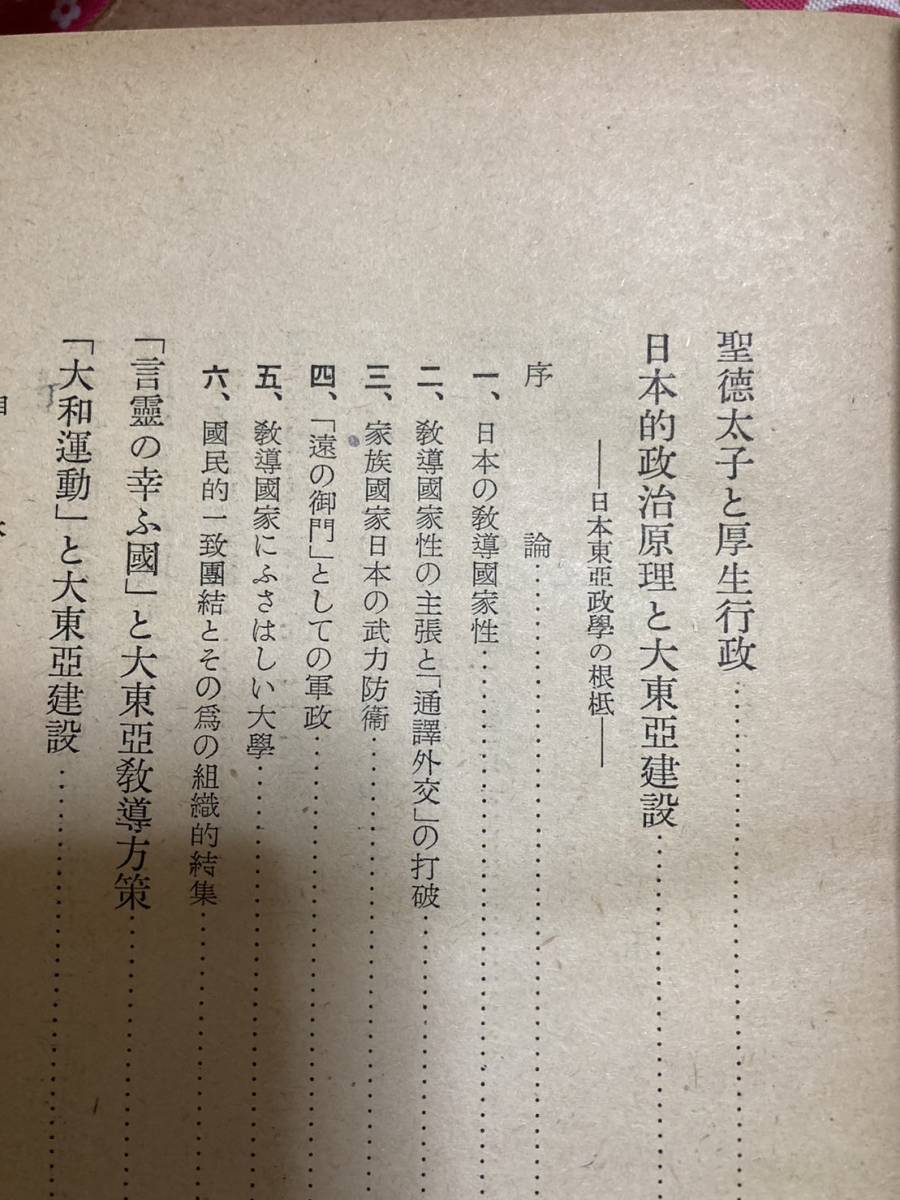 聖德太子と厚生行政
日本的政治原理と大東亞建設
――日本東亞政學の根柢――
序論
一、日本の敎導國家性
二、敎導國家性の主張と「通譯外交」の打破
三、家族國家日本の武力防衞
四、「遠の御門」としての軍政
五、敎導國家にふさはしい大學
六、國民的一致團結とその爲の組織的結集
「言靈の幸ふ國」と大東亞敎導方策
「大和運動」と大東亞建設